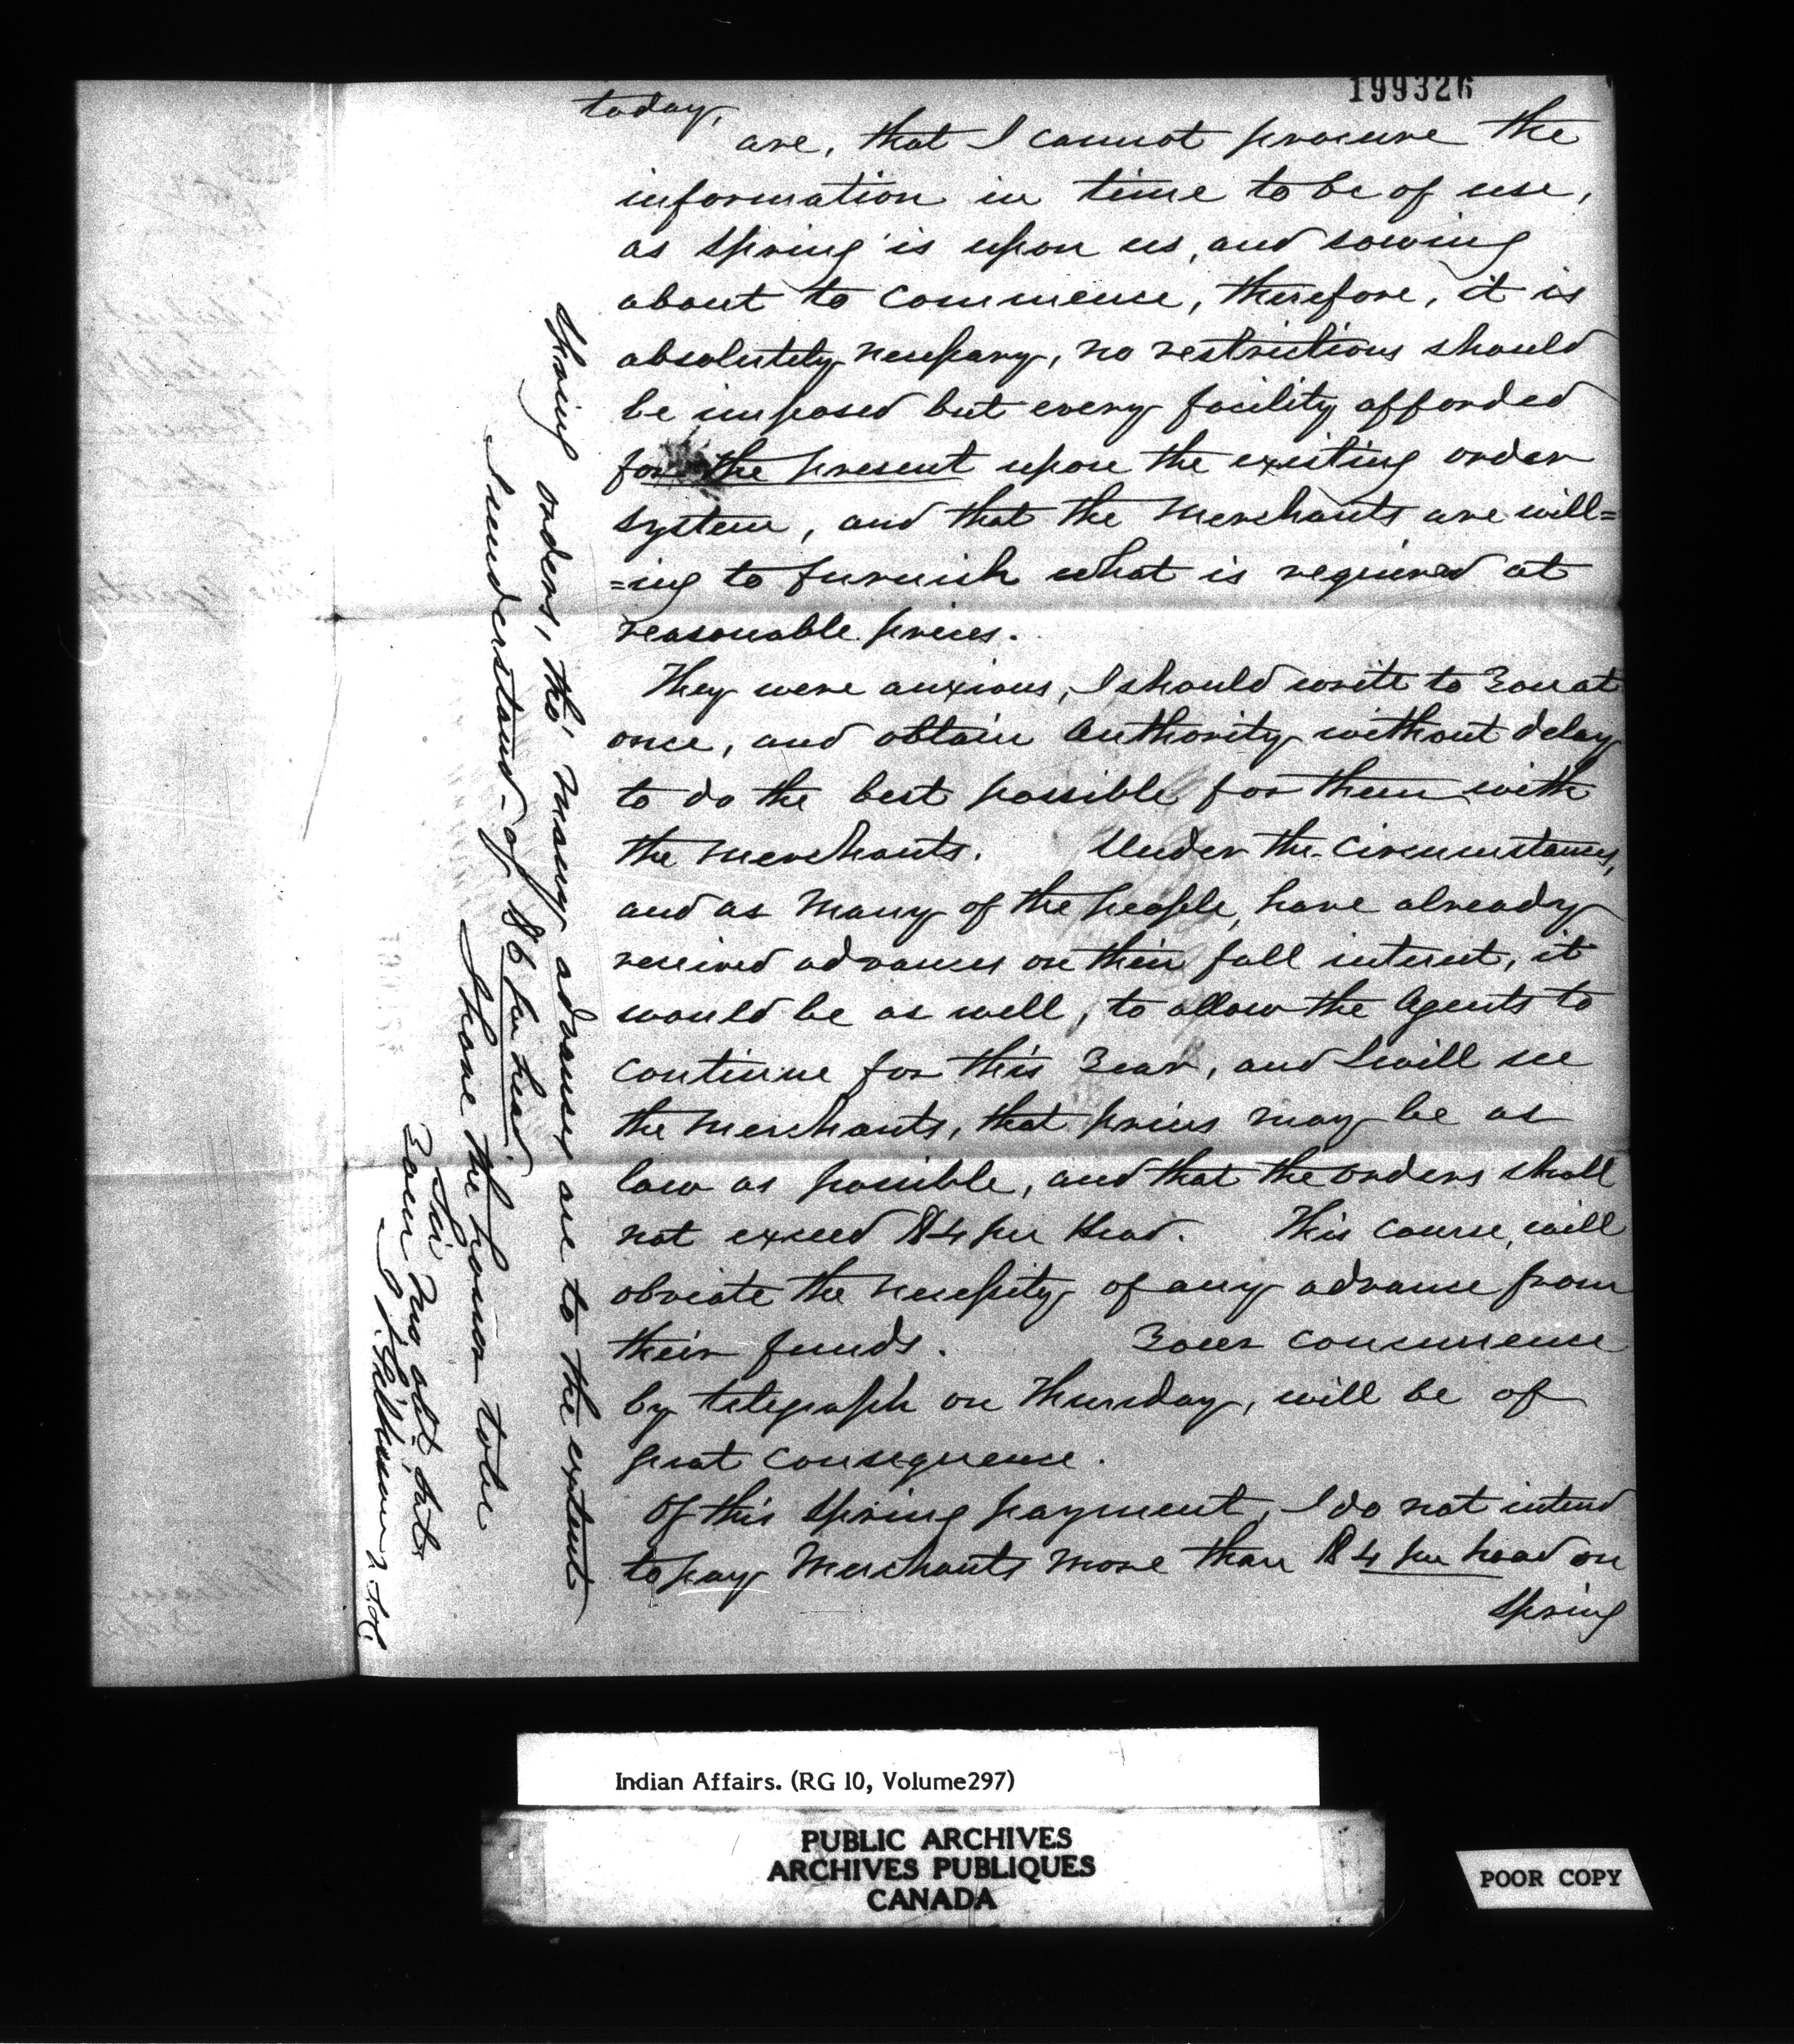 199326
today,
are, that I cannot procure the
information in time to be of use,
as Spring is upon us, and sowing
about to commence, therefore, it is
absolutely necessary, no restrictions should
be imposed but every facility afforded
for the present upon the existing order
system, and that the Merchants are will=
=ing to furnish what is required at
reasonable prices.
They were anxious, I should write to You at
once, and obtain Authority without delay
to do the best possible for them with
the Merchants. Under the Circumstances,
and as Many of the people, have already
received advances on their fall interest, it
would be as well, to allow the Agents to
continue for this Year, and I will see
the Merchants, that prices may be as
low as possible, and that the orders shall
not exceed $4 per Head. This course, will
obviate the necessity of any advance from
their funds. Your concurrence
by telegraph on Thursday, will be of
great consequence.
Of this Spring payment, I do not intend
to pay Merchants more than $4 per head on
Spring
Spring orders, tho' many advances are to the extent
I understand of $6 per head.
I have the honor to be
Sir
Your Mo. obt. Svt.
J. Gilkison
Indian Affairs. (RG 10, Volume297)
PUBLIC ARCHIVES
ARCHIVES PUBLIQUES
CANADA
POOR COPY